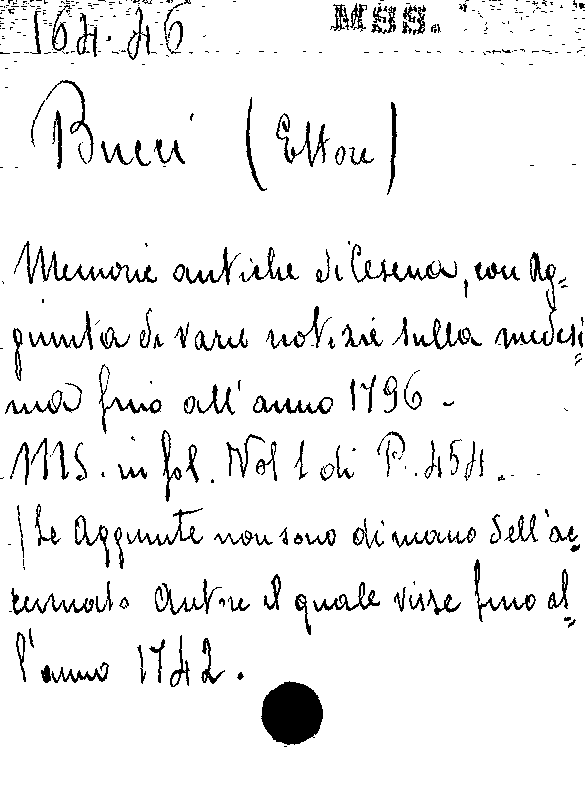 164.46 MSS.
Bucci (Ettore)
Memorie antiche di Cesena, con Ag=
giunta di varie notizie sulla medesi=
ma fino all'anno 1796 -
MS. in fol. Vol 1 di P. 454.
(Le Aggiunte non sono di mano dell'ac=
cennato Autore il quale visse fino al=
l'anno 1742.